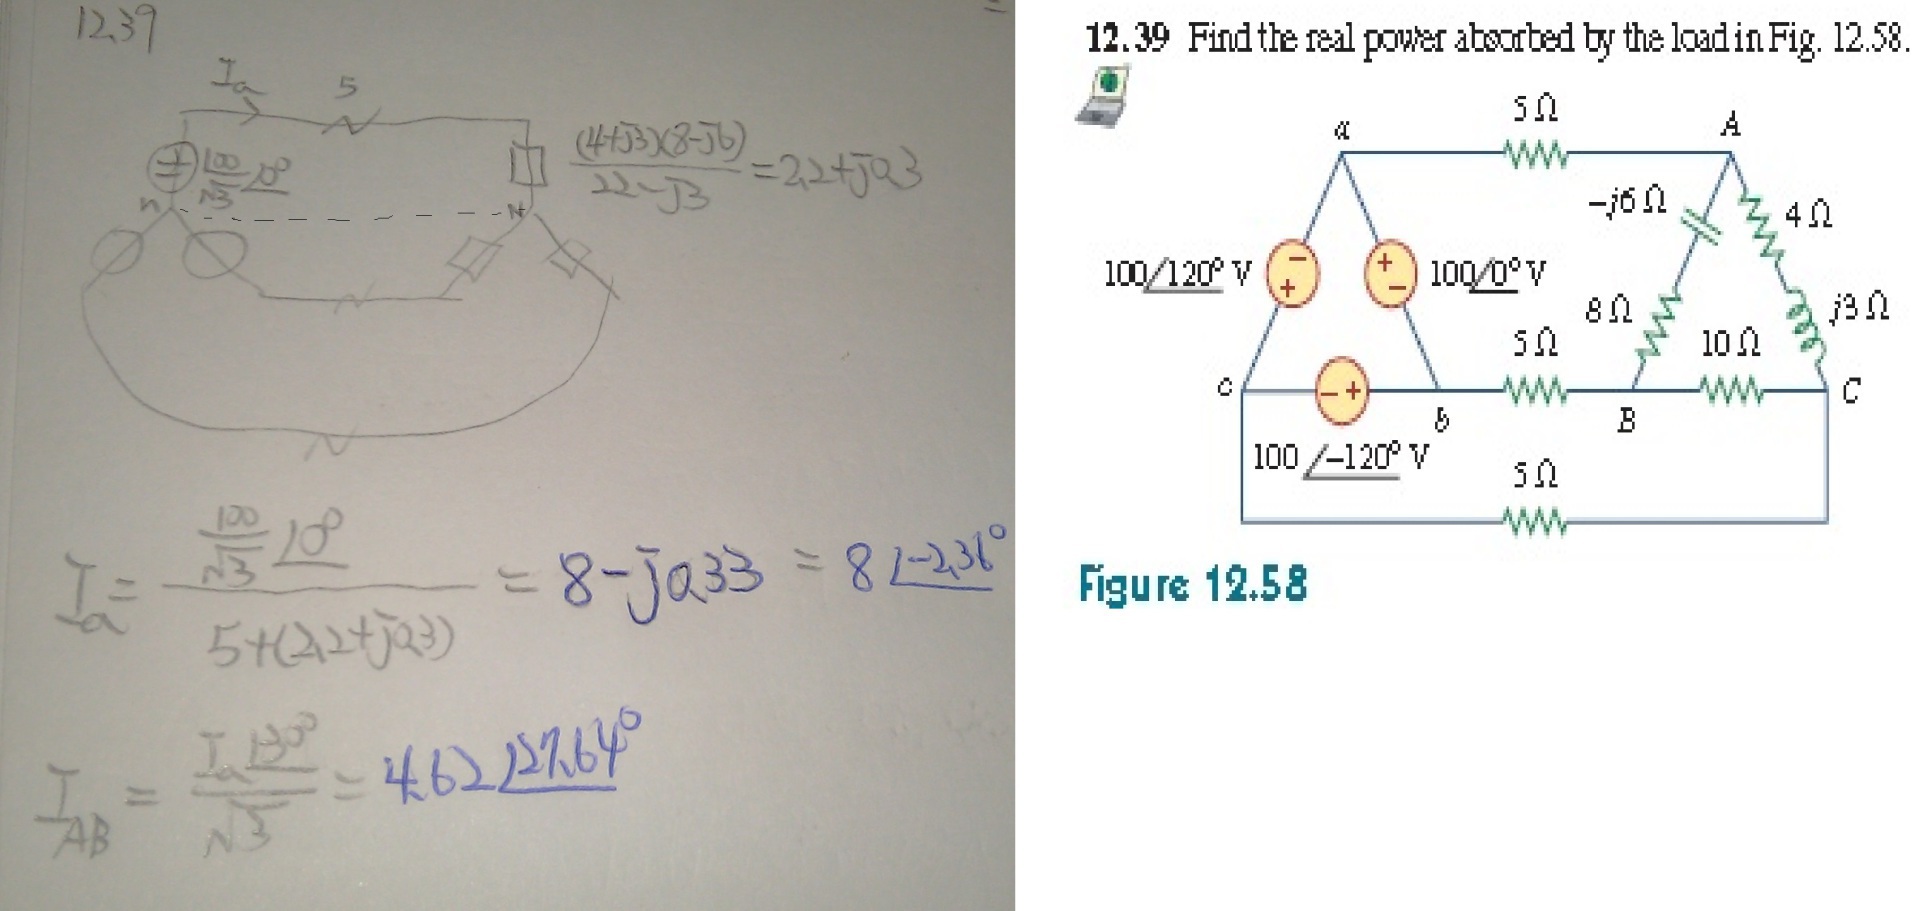 12.39
I_a
5
100/√3 ∠0°
n
N
(4+j3)(8-j6)/22-j3 = 2.2+j0.3
I_a = 100/√3 ∠0° / 5+(2.2+j0.3) = 8-j0.33 = 8∠-2.36°
I_AB = I_a∠30°/√3 = 4.62∠27.64°
12.39 Find the real power absorbed by the load in Fig. 12.58.
5 Ω
a
A
-j6 Ω
4 Ω
100∠120° V
100∠0° V
8 Ω
j3 Ω
5 Ω
10 Ω
c
b
B
C
100∠-120° V
5 Ω
Figure 12.58